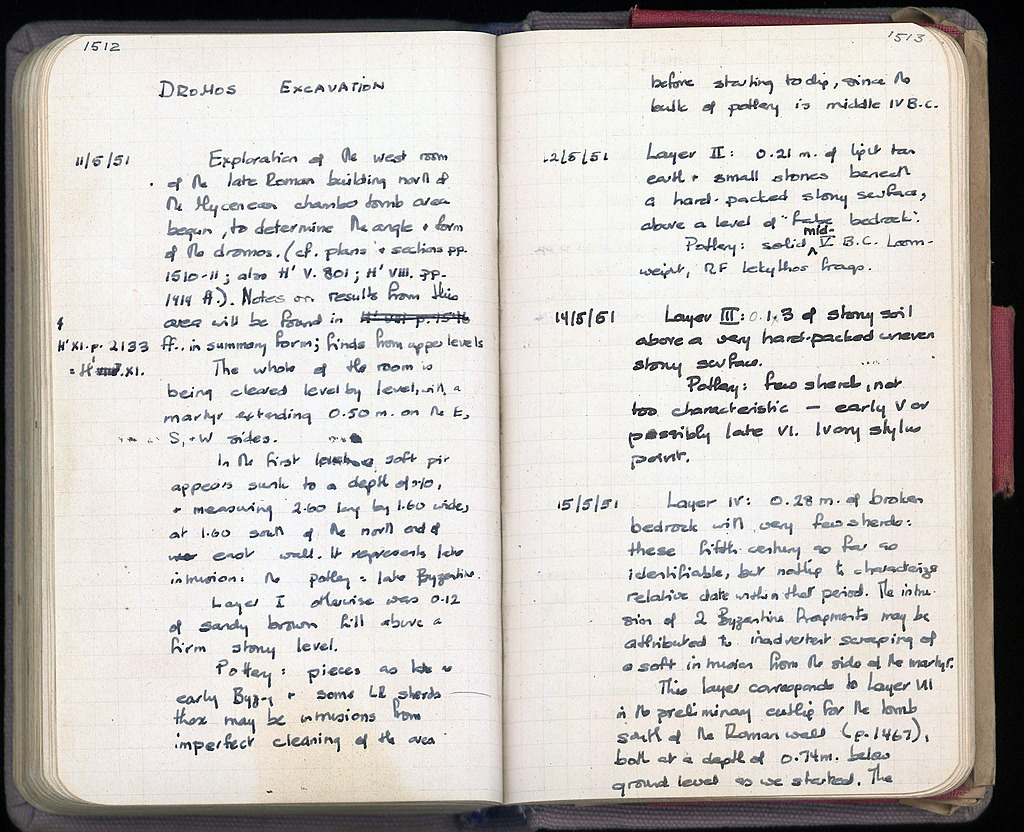 1512
DROMOS EXCAVATION
11/5/51 Exploration of the west room
of the late Roman building north of
the Mycenean chamber tomb area
began, to determine the angle + form
of the dromos. (cf. plans + sections pp.
1510-11; also H' V. 801; H' VIII. pp.
1414 ff.). Notes on results from this
area will be found in
H' XI. p. 2133 ff.. in summary form; finds from upper levels
= H' XI.
The whole of the room is
being cleared level by level, with a
martyr extending 0.50 m. on the E,
S, + W sides.
In the first soft pit
appears sunk to a depth of
+ measuring 2.60 long by 1.60 wide,
at 1.60 south of the north end of
east wall. It represents late
intrusion: the pottery = late Byzantine.
Layer I otherwise was 0.12
of sandy brown fill above a
firm stony level.
Pottery: pieces as late as
early Byz- + some LR sherds
these may be intrusions from
imperfect cleaning of the area
1513
before starting to dig, since the
bulk of pottery is middle IV B.C.
12/5/51 Layer II: 0.21 m. of light tan
earth + small stones beneath
a hard-packed stony surface,
above a level of "false bedrock".
Pottery: solid mid-V B.C. Loom-
weight, RF lekythos frags.
14/5/51 Layer III: 0.13 of stony soil
above a very hard-packed uneven
stony surface.
Pottery: few sherds, not
too characteristic — early V or
possibly late VI. Ivory stylus
point.
15/5/51 Layer IV: 0.28 m. of broken
bedrock with very few sherds:
these fifth century so far as
identifiable, but nothing to characterize
relative date within that period. The intru-
sion of 2 Byzantine fragments may be
attributed to inadvertent scraping of
a soft intrusion from the side of the martyr.
This layer corresponds to Layer VII
in the preliminary cutting for the tomb
south of the Roman wall (p. 1467),
both at a depth of 0.74 m. below
ground level as we started. The